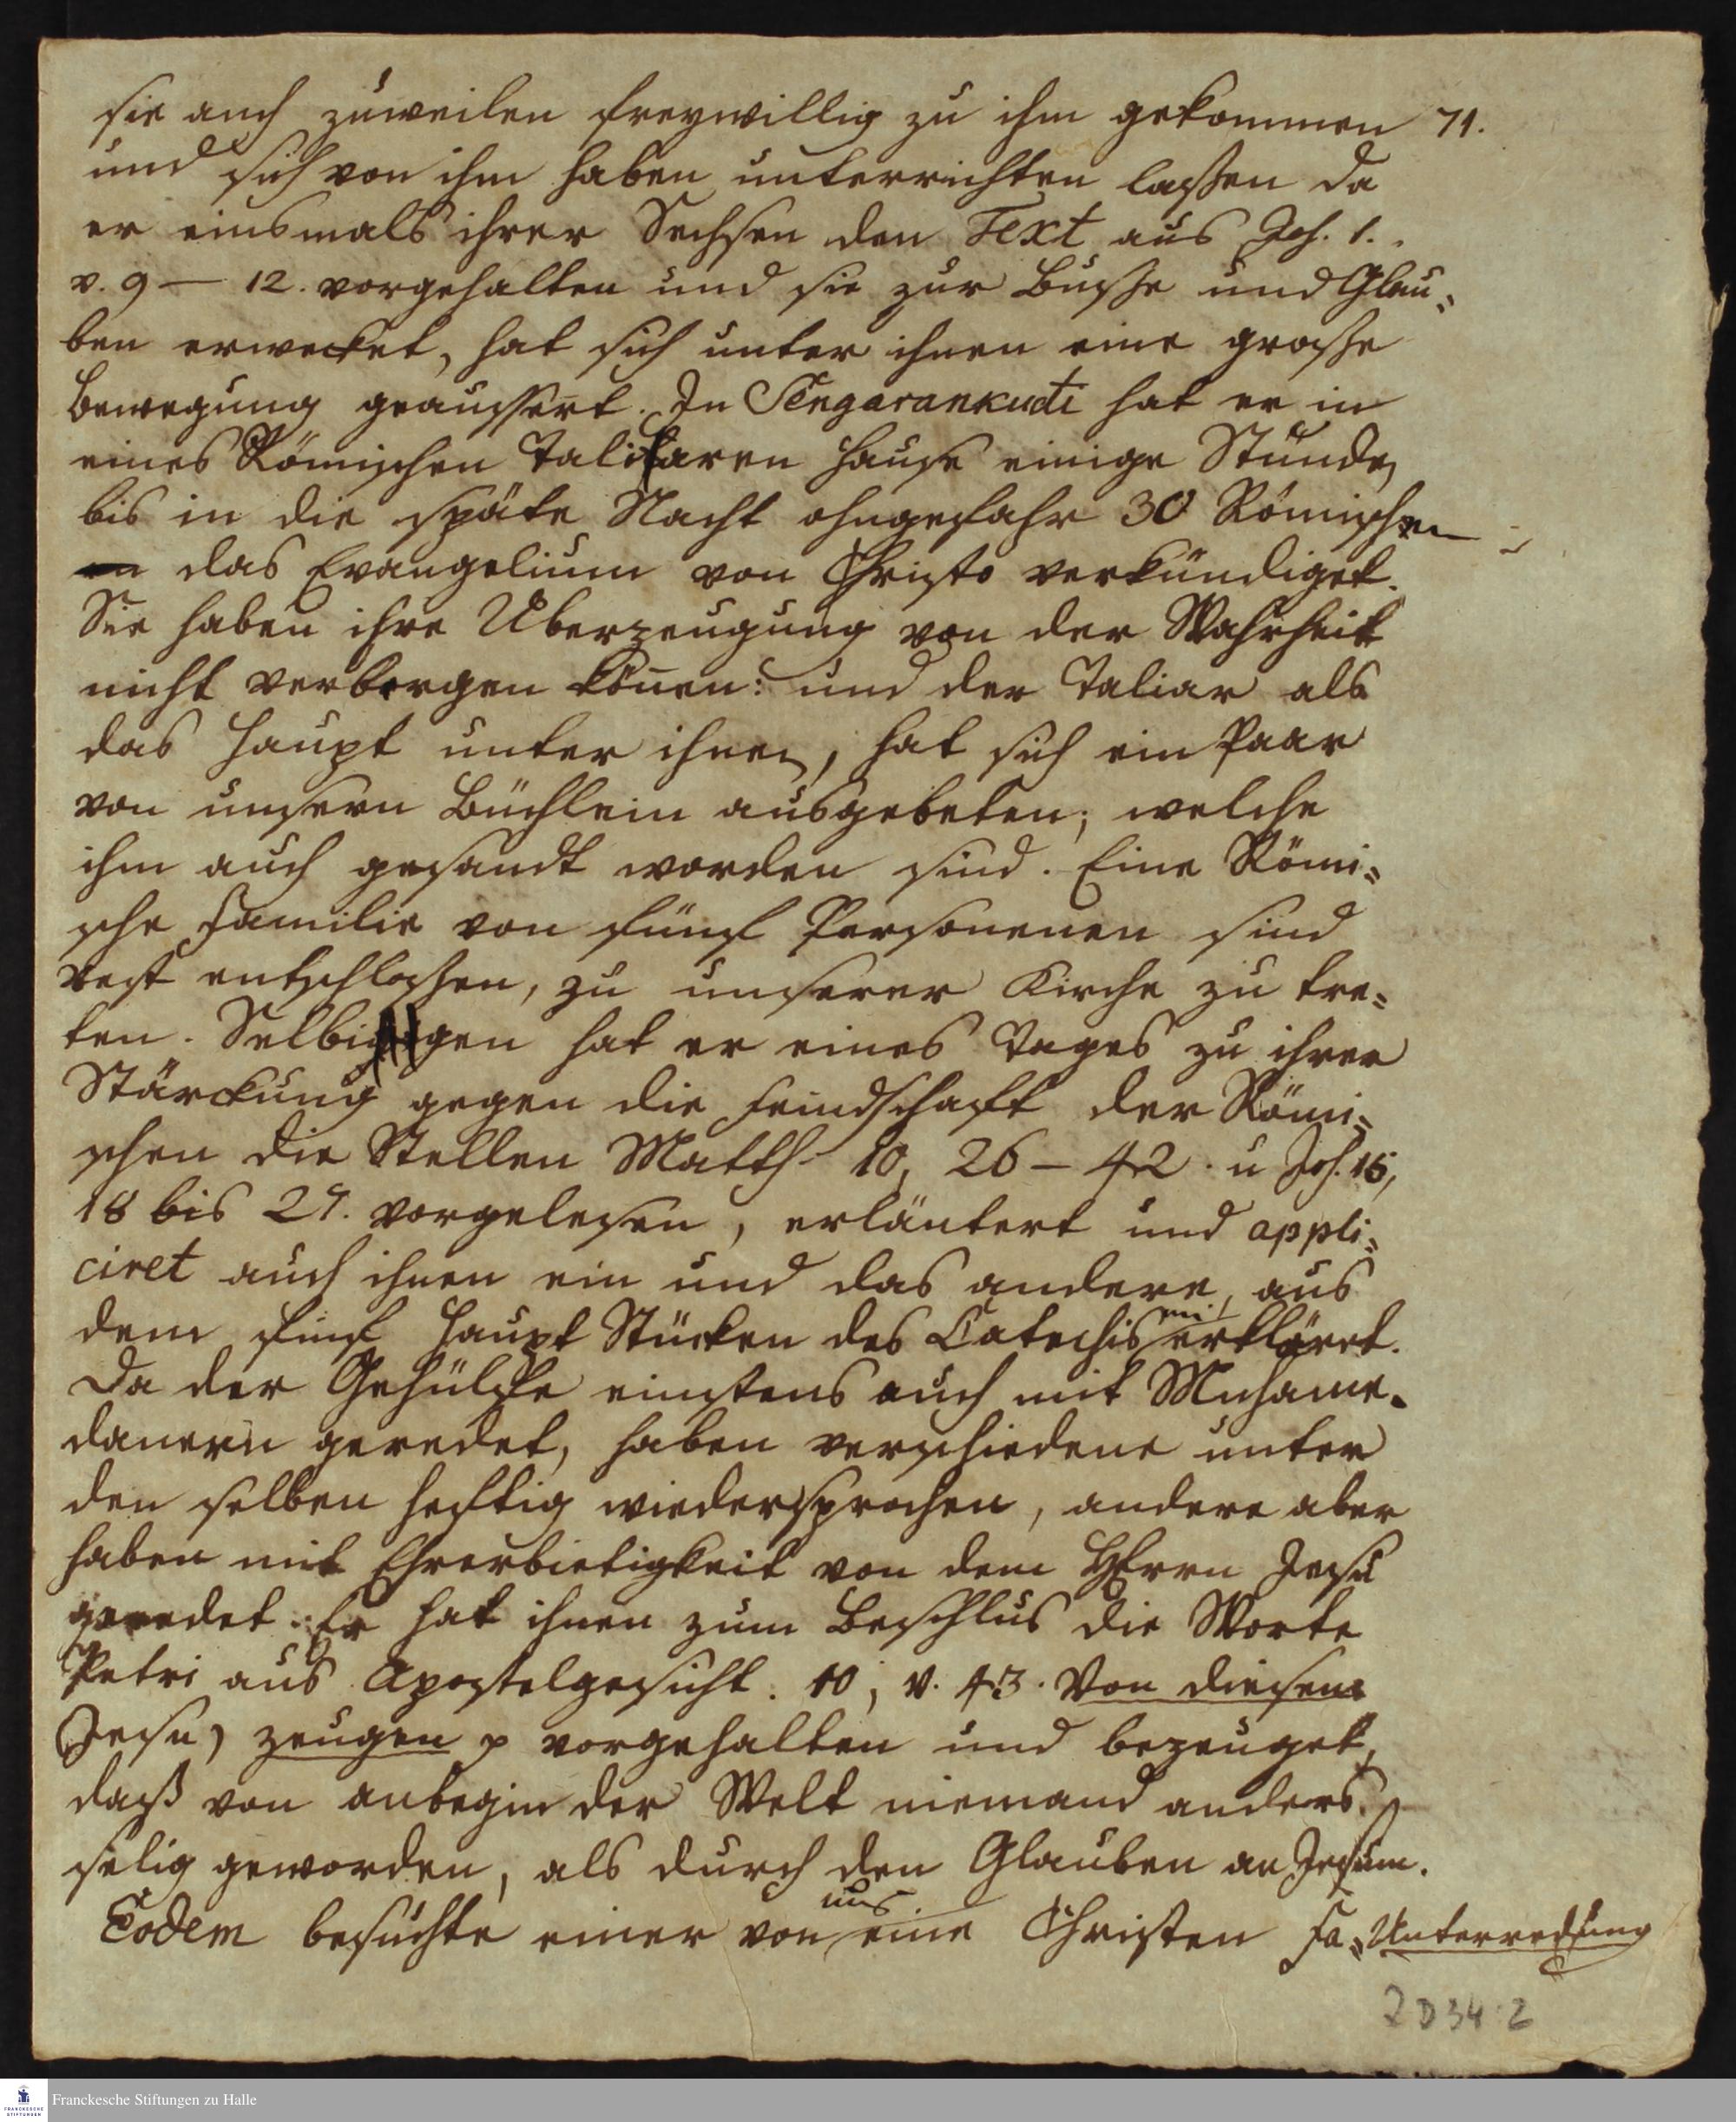 sie auch zuweilen freywillig zu ihm gekommen 71.
und sich von ihm haben unterrichten laßen da
er einsmals ihrer Sechsen den Text aus Joh. 1.
v. 9 – 12. vorgehalten und sie zur Buße und Glau-
ben erwecket, hat sich unter ihnen eine große
Bewegung geaussert. In Sengarankudi hat er in
eines Römischen Taliaren Hause einige Stunden
bis in die späte Nacht ohngefahr 30 Römischen
en das Evangelium von Christo verkündiget.
Sie haben ihre Uberzeugung von der Wahrheit
nicht verbergen könen: und der Taliar als
das Haupt unter ihnen, hat sich ein Paar
von unsern Büchlein ausgebeten; welche
ihm auch gesandt worden sind. Eine Römi-
sche Familie von fünf Personenen sind
vest entschloßen, zu unserer Kirche zu tre-
ten. Selbigen hat er eines Tages zu ihrer
Stärckung gegen die Feindschaft der Römi-
schen die Stellen Matth. 10, 26 – 42. u Joh. 15,
18 bis 27. vorgelesen, erläutert und appli-
ciret auch ihnen ein und das andere, aus
dem fünf Haupt Stücken des Catechismi erkläret.
Da der Gehülfe einstens auch mit Muhame-
danern geredet, haben verschiedene unter
den selben heftig wiedersprochen, andere aber
haben mit Ehrerbietigkeit von dem HErrn Jesu
geredet. Er hat ihnen zum Beschlus die Worte
Petri aus Apostelgesicht. 10, v. 43. Von diesem
(Jesu) zeugen p vorgehalten und bezeuget,
daß von anbegin der Welt niemand anders
selig geworden, als durch den Glauben an Jesum.
Eodem besuchte einer von uns eine Christen Fa- Unterredung
2 D 34:2
Franckesche Stiftungen zu Halle
FRANCKESCHE STIFTUNGEN